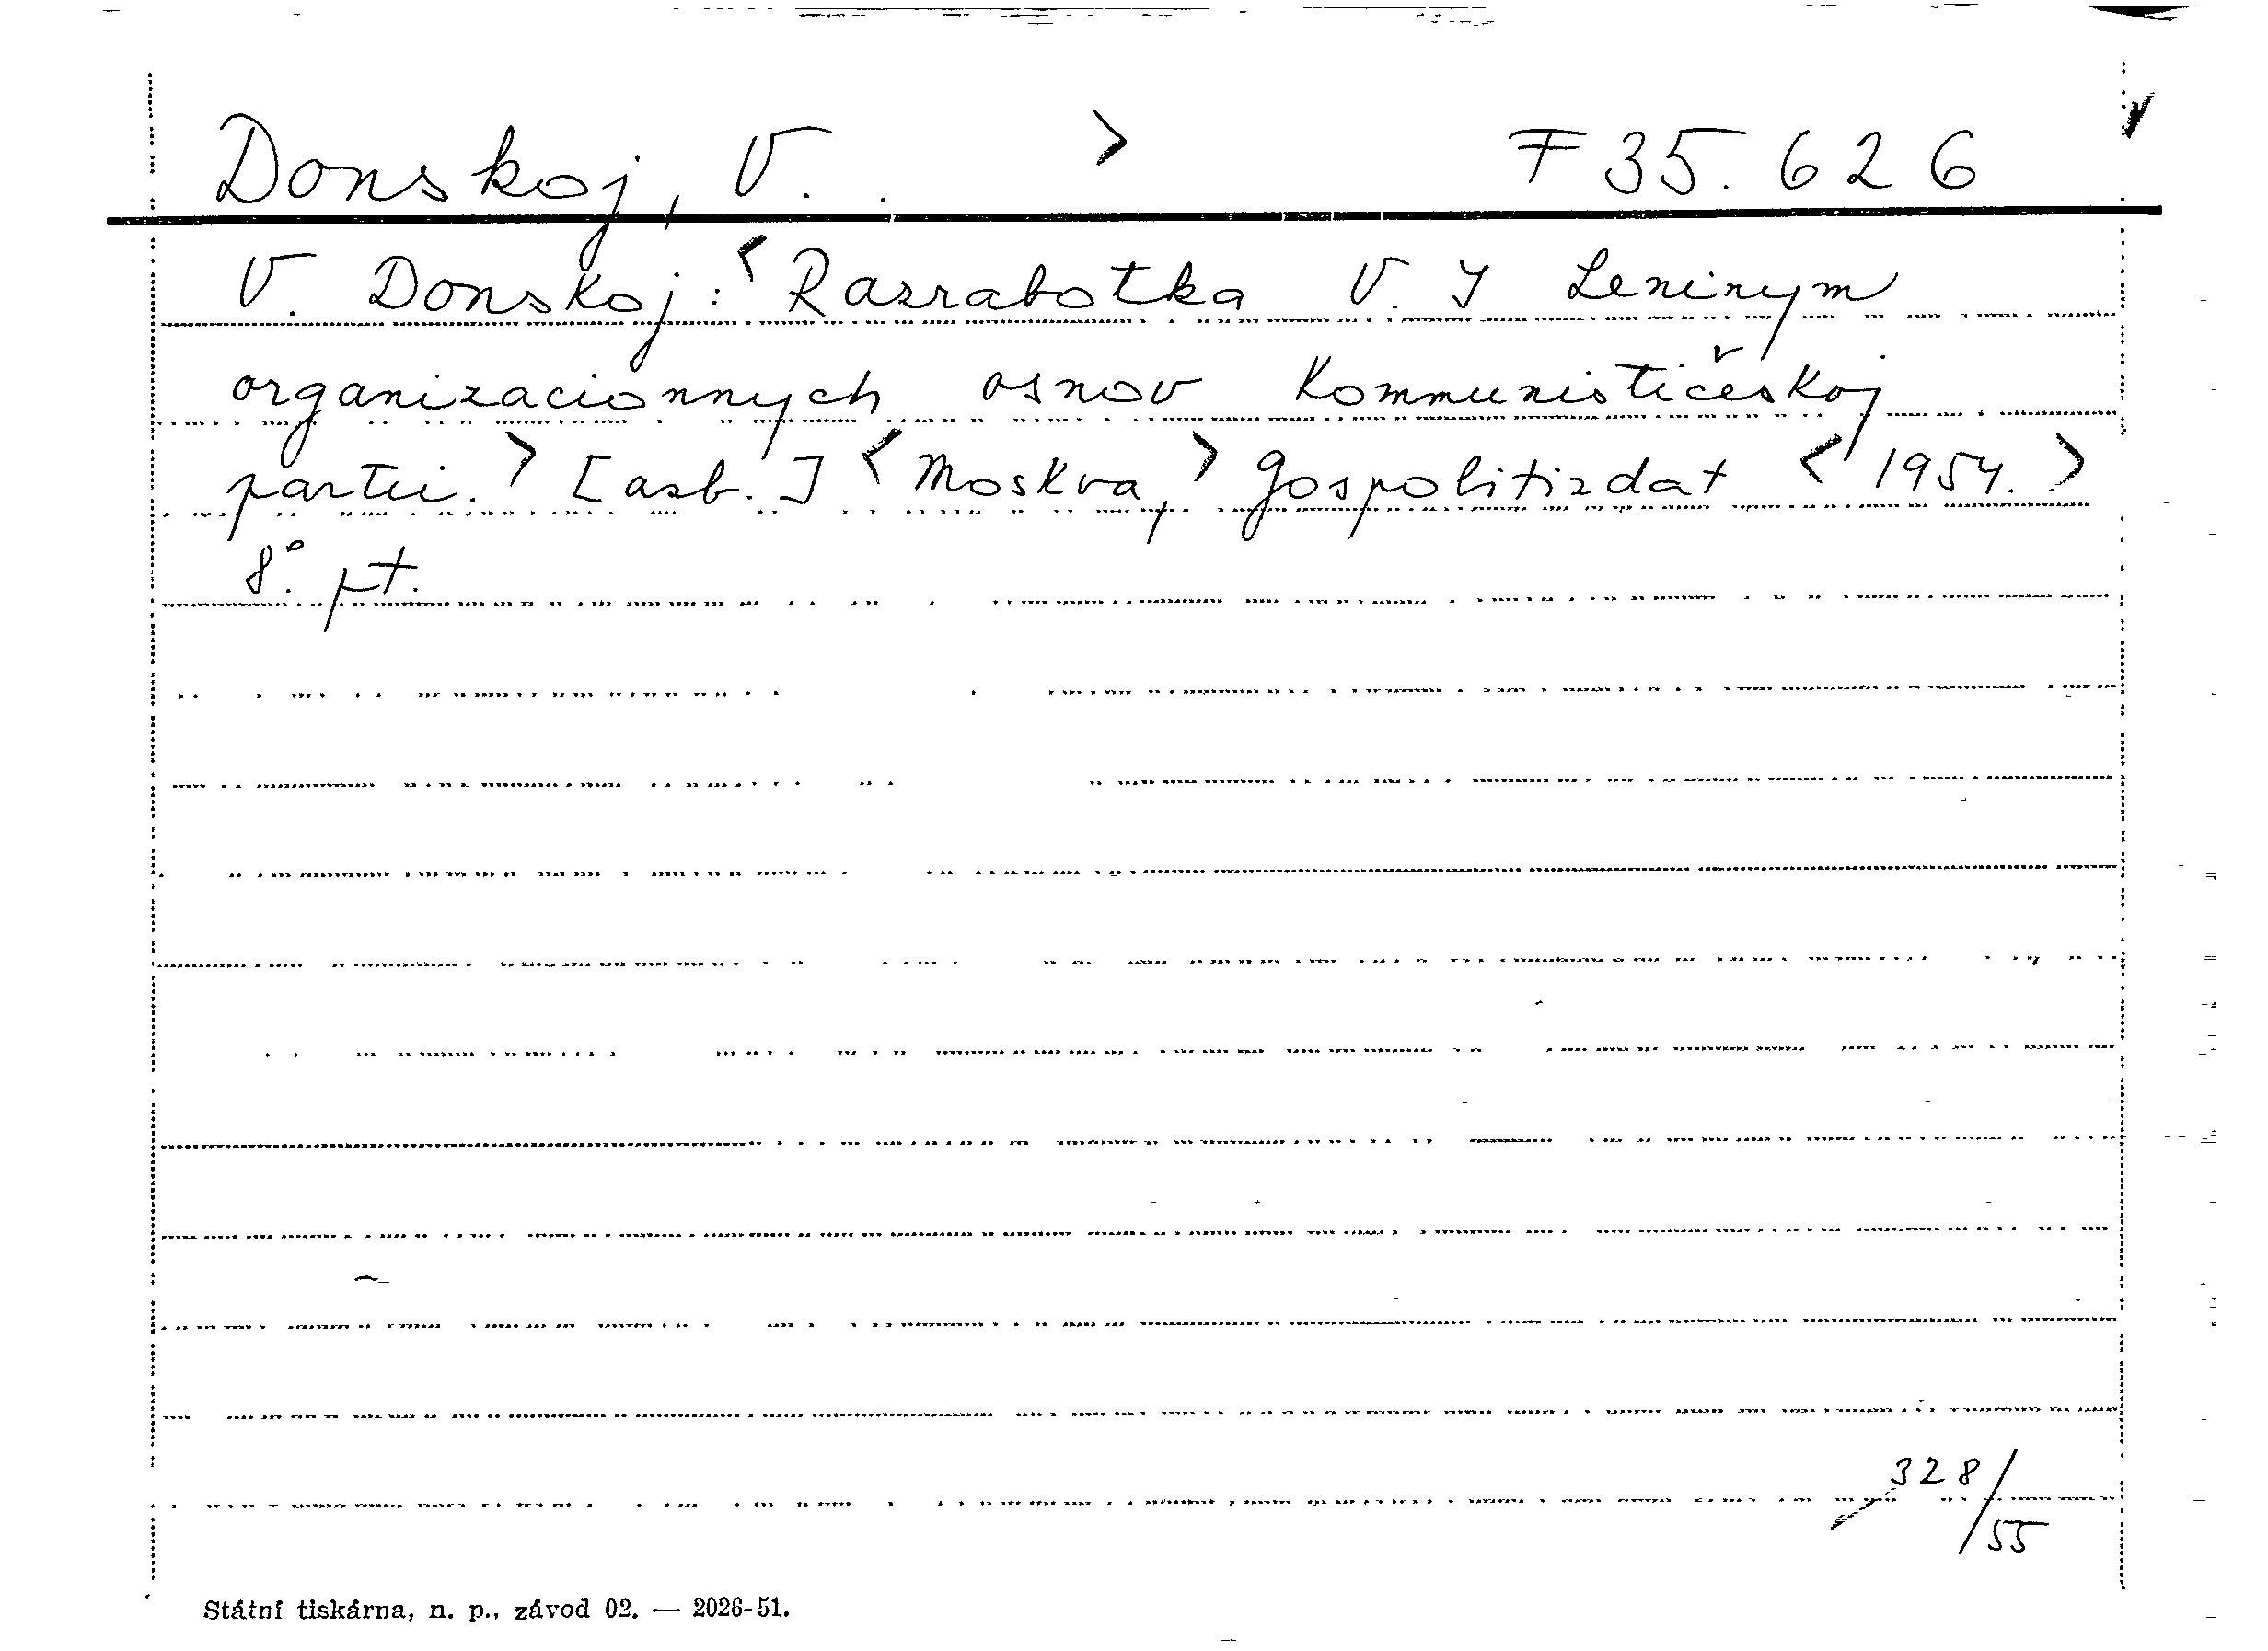 Donskoj, V. > F 35.626
V. Donskoj: < Razrabotka V. I Leninym
organizacionnych osnov Kommunističeskoj
partii. > [azb.] < Moskva, > Gospolitizdat < 1954. >
8°. pt.
328/55
Státní tiskárna, n. p., závod 02. — 2026-51.